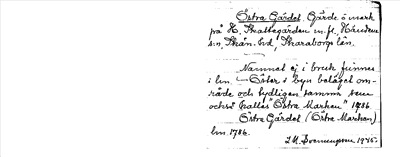 Östra Gärdet. Gärde ö mark
på N. Skattegården m. fl., Händene
s:n, Skån. hd, Skaraborgs län.
Namnet ej i bruk finnes
i lm. Öster i byn beläget om-
råde och tydligen samma som
också kallas "Östra Marken" 1786
Östra Gärdet (Östra Marken)
lm. 1786.
1945.